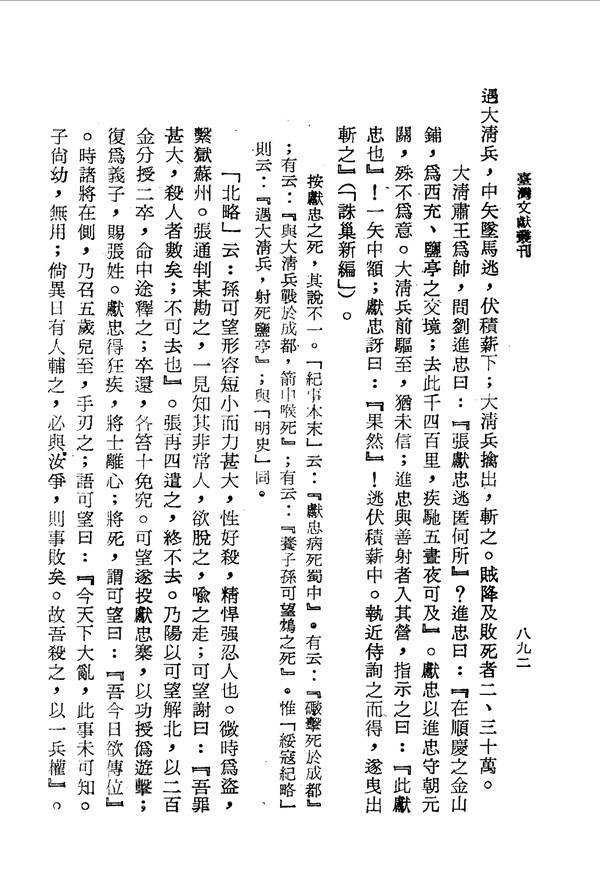 臺灣文獻叢刊
八九二
遇大淸兵，中矢墜馬逃，伏積薪下；大淸兵擒出，斬之。賊降及敗死者二、三十萬。
大淸肅王爲帥，問劉進忠曰：『張獻忠逃匿何所』？進忠曰：『在順慶之金山
鋪，爲西充、鹽亭之交境；去此千四百里，疾馳五晝夜可及』。獻忠以進忠守朝元
關，殊不爲意。大淸兵前驅至，猶未信；進忠與善射者入其營，指示之曰：『此獻
忠也』！一矢中額；獻忠訝曰：『果然』！逃伏積薪中。執近侍詢之而得，遂曳出
斬之』（「誅巢新編」）。
按獻忠之死，其說不一。「紀事本末」云：『獻忠病死蜀中』。有云：『礮擊死於成都』
；有云：『與大淸兵戰於成都，箭中喉死』；有云：『養子孫可望鴆之死』。惟「綏寇紀略」
則云：『遇大淸兵，射死鹽亭』；與「明史」同。
「北略」云：孫可望形容短小而力甚大，性好殺，精悍强忍人也。微時爲盜，
繫獄蘇州。張通判某勘之，一見知其非常人，欲脫之，喩之走；可望謝曰：『吾罪
甚大，殺人者數矣；不可去也』。張再四遣之，終不去。乃陽以可望解北，以二百
金分授二卒，命中途釋之；卒還，各笞十免究。可望遂投獻忠寨，以功授僞遊擊；
復爲義子，賜張姓。獻忠得狂疾，將士離心；將死，謂可望曰：『吾今日欲傳位』
。時諸將在側，乃召五歲兒至，手刃之；語可望曰：『今天下大亂，此事未可知。
子尙幼，無用；倘異日有人輔之，必與汝爭，則事敗矣。故吾殺之，以一兵權』。